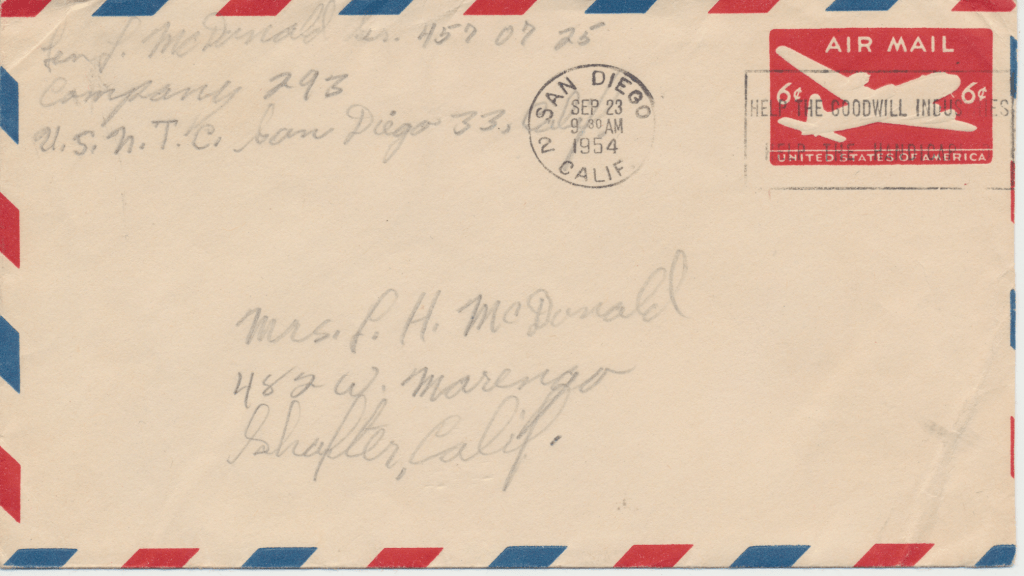 McDonald 457 07 25
Company 293
U.S.N.T.C. San Diego 33, Calif
SAN DIEGO
SEP 23
9 30 AM
1954
2 CALIF.
AIR MAIL
6¢ 6¢
HELP THE GOODWILL INDUSTRIES
HELP THE HANDICAP
UNITED STATES OF AMERICA
Mrs. L. H. McDonald
482 W. Marengo
Shafter, Calif.